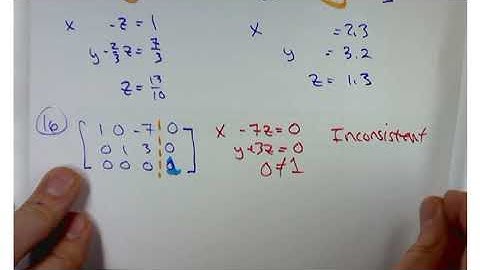 x -z = 1
y - 2/3 z = 7/3
z = 13/10
x = 2.3
y = 3.2
z = 1.3
16
[ 1 0 -7 | 0 ]
[ 0 1 3 | 0 ]
[ 0 0 0 | ]
x -7z = 0
y+3z = 0
0 ≠ 1
Inconsistent